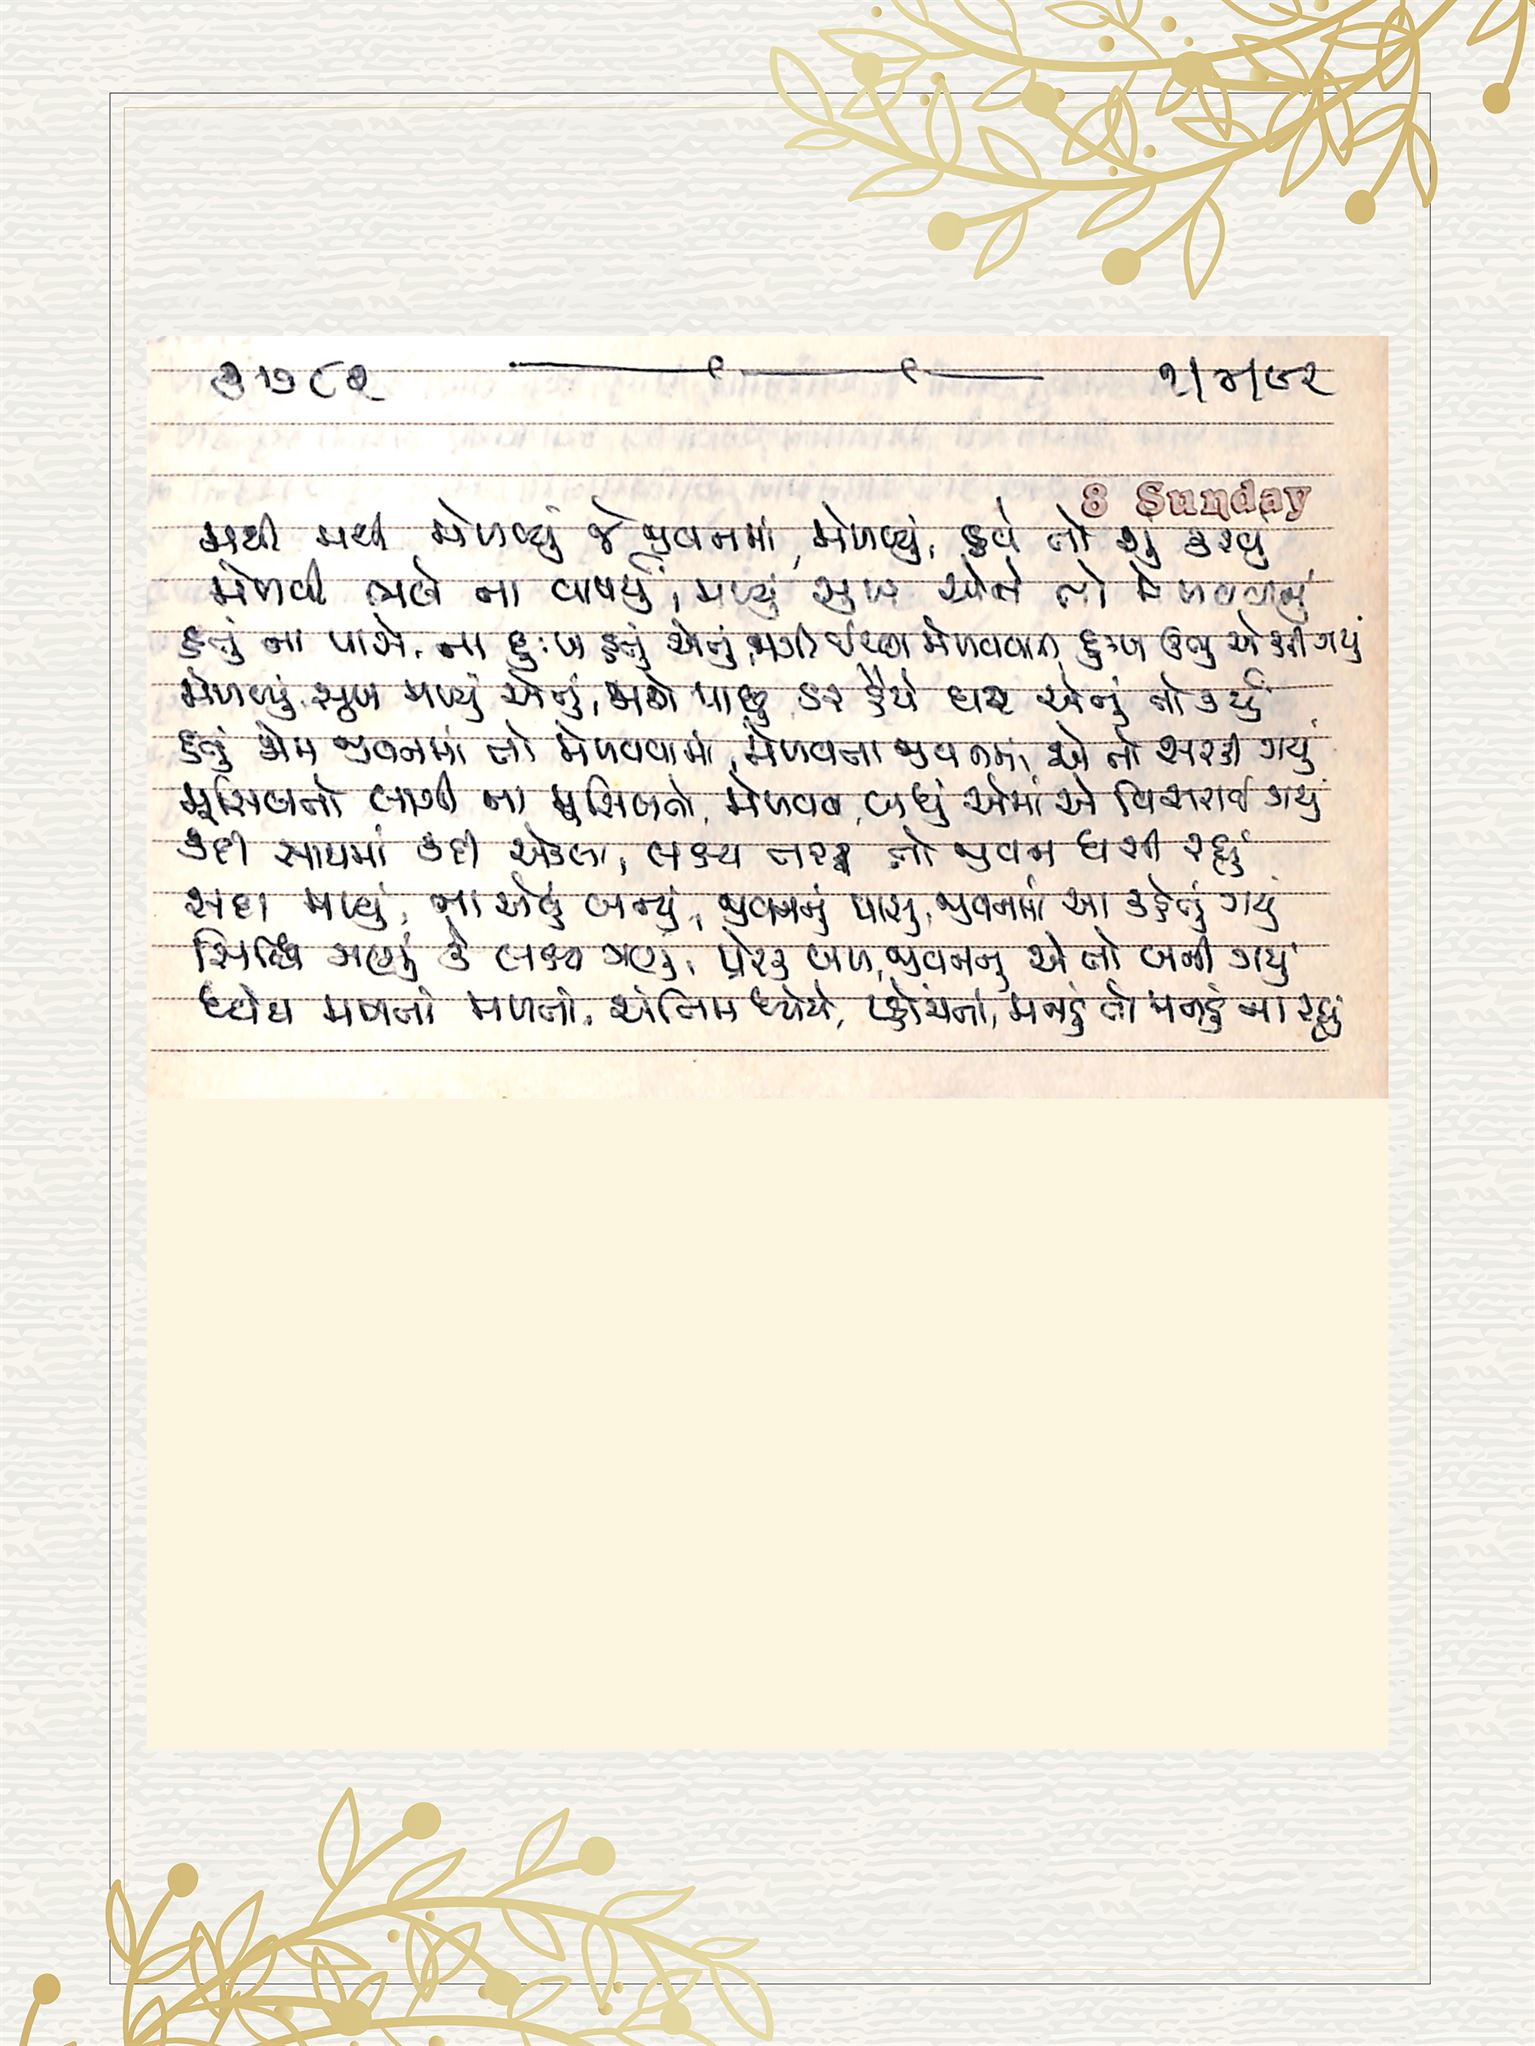 ૩૭૮૨ ૧/૪/૯૨
8 Sunday
મથી મથી મેળવ્યું જે જીવનમાં, મેળવ્યું, હવે તો શું કરવું
મેળવી ભલે ના વાપર્યું, મળ્યું સુખ એને તો મેળવવાનું
હતું ના પાસે, ના દુઃખ હતું એનું, જાગી ઇચ્છા મેળવવાની, દુઃખ ઊભુ એ કરી ગયું
મેળવ્યું, સુખ મળ્યું એનું, જાશે પાછું ડર હૈયે ઘર એનું તો કર્યું
હતું જોમ જીવનમાં તો મેળવવામાં, મેળવતા જીવનમાં, એ તો સરકી ગયું
મુસિબતો લાગી ના મુસિબતો, મેળવવા, બધું એમાં એ વિસરાઈ ગયું
કદી સાથમાં કદી એકલા, લક્ષ્ય તરફ તો જીવન ધસી રહ્યું
સદા મળ્યું, ના એવું બન્યું, જીવનનું પાસુ, જીવનમાં આ કહેતું ગયું
સિધ્ધિ ગણું કે લક્ષ્ય ગણું, પ્રેરક બળ, જીવનનુ એ તો બની ગયું
ધ્યેય મળતાં મળતાં, અંતિમ ધ્યેયે, પ્હોંચતાં, મનડું તો મનડું ના રહ્યું